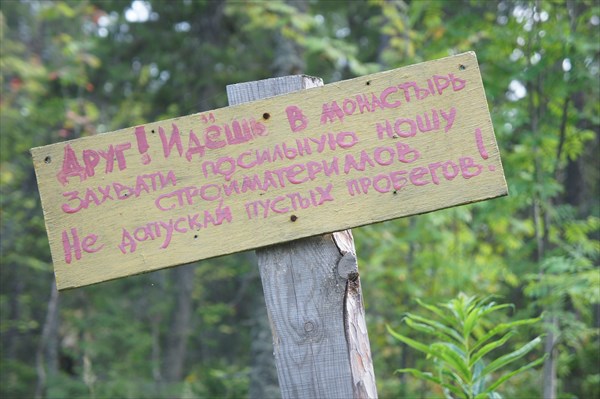 Друг! Идёшь в монастырь
захвати посильную ношу
стройматериалов
Не допускай пустых пробегов!